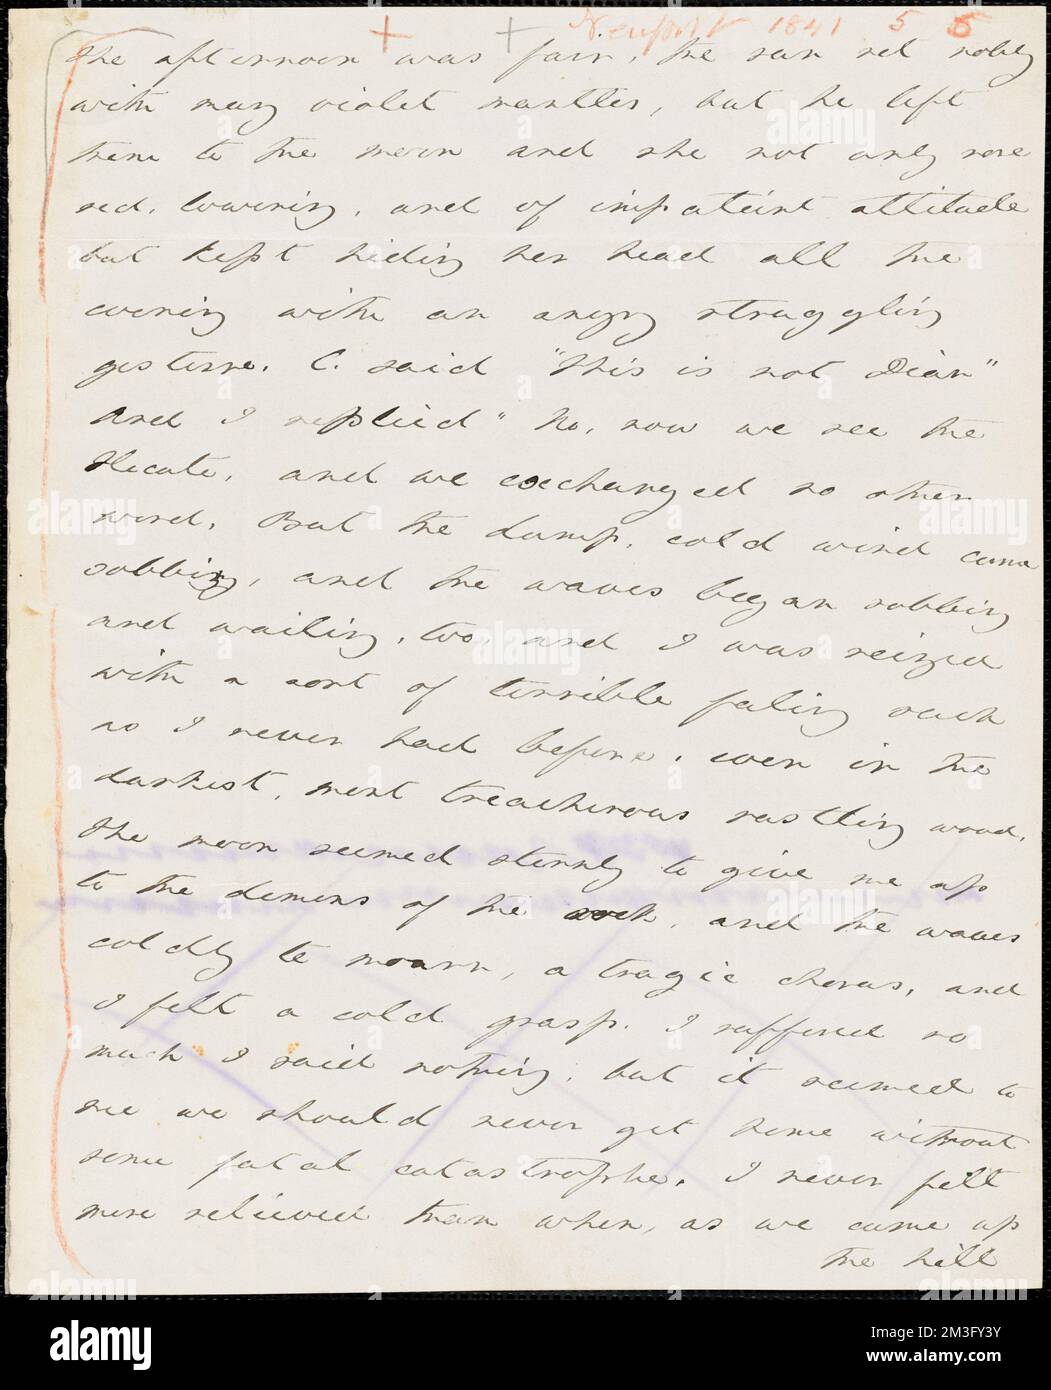 Newport 1841 5 5
The afternoon was fair, the sun set nobly
with many violet mantles, but he left
them to the moon and she not only rose
red, lowering, and of impatient attitude
but kept hiding her head all the
evening with an angry struggling
gesture. C. said "This is not Dian"
And I replied "No, now we see the
Hecate, and we exchanged no other
word. But the damp, cold wind came
sobbing, and the waves began sobbing
and wailing, too, and I was seized
with a sort of terrible feeling such
as I never had before, even in the
darkest, most treacherous rustling wood.
The moon seemed sternly to give me up
to the demons of the rock, and the waves
coldly to mourn, a tragic chorus, and
I felt a cold grasp. I suffered so
much I said nothing, but it seemed to
me we should never get home without
some fatal catastrophe. I never felt
more relieved than when, as we came up
the hill
alamy
Image ID: 2M3FY3Y
www.alamy.com